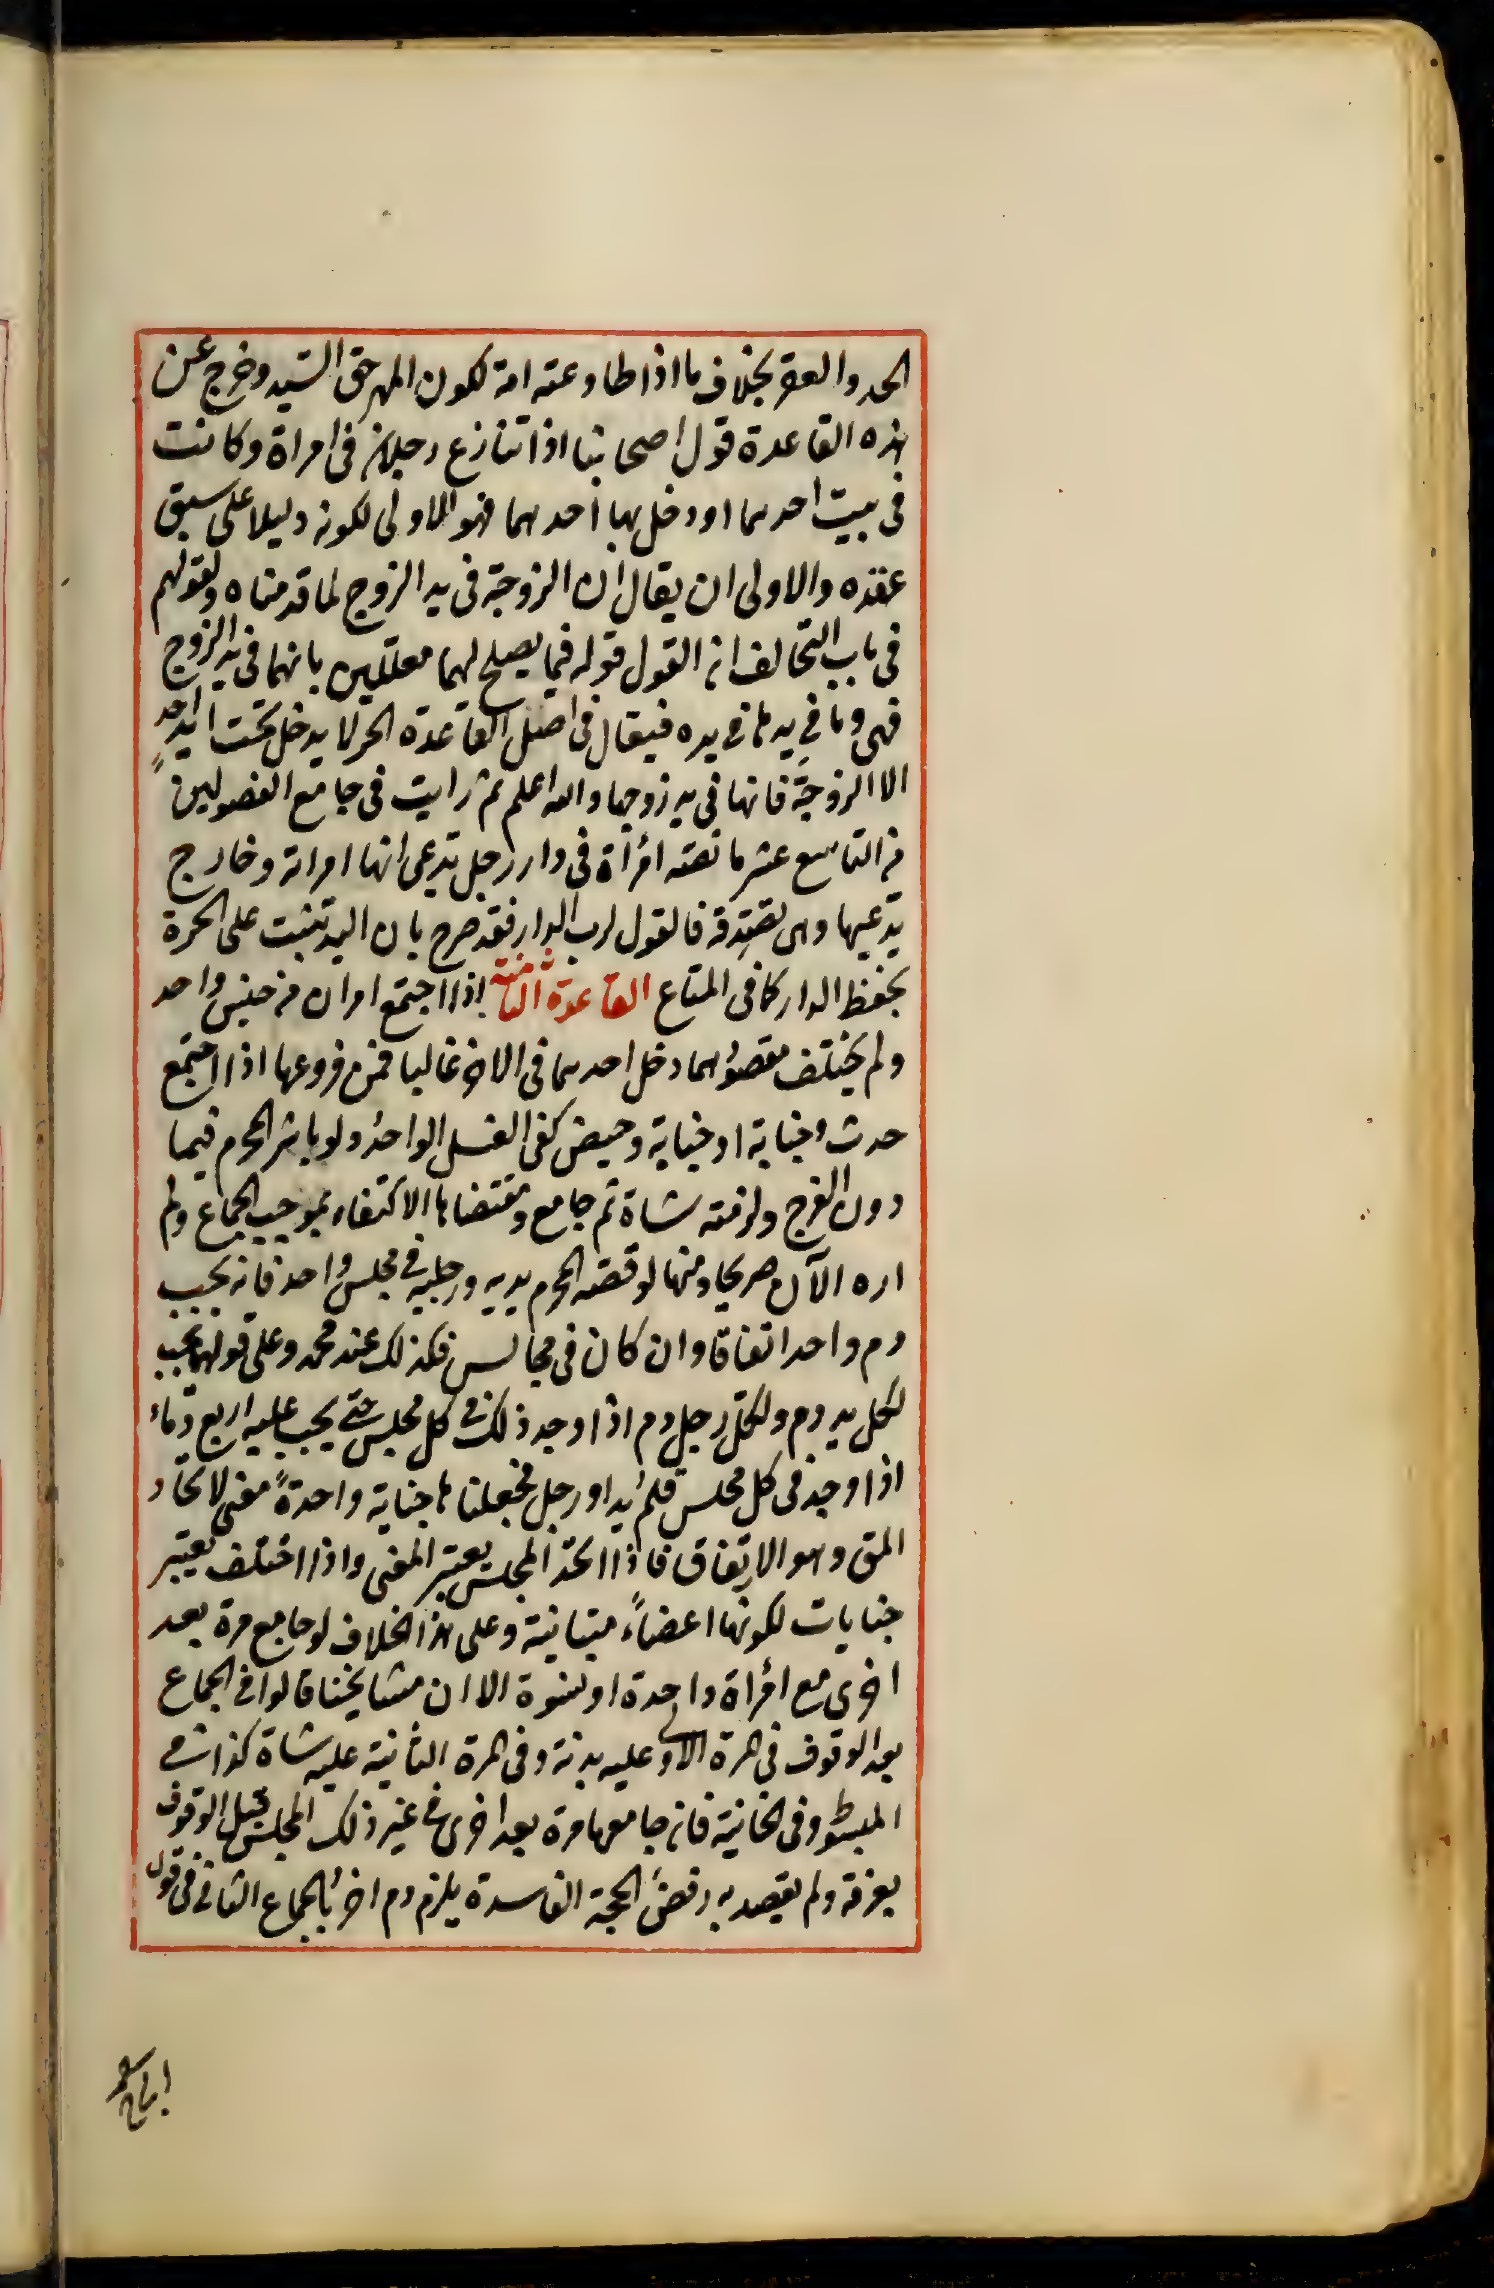 الحد والعقر بخلاف ما اذا طاوعته امة لكون المهر حق السيد وخرج عن
هذه القاعدة قول اصحابنا اذا تنازع رجلان فى امراة وكانت
فى بيت احدهما او دخل بها احدهما فهو الاولى لكونه دليلا على سبق
عقده والاولى ان يقال ان الزوجة فى يد الزوج لما قدمناه ولقولهم
فى باب التحالف ان القول قوله فيما يصلح لهما معللين بانهما فى يد الزوج
فهى وما في يدها في يده فيقال فى اصل القاعدة الحر لا يدخل تحت يد احدٍ
الا الزوجَة فانها فى يد زوجها والله اعلم ثم رايت فى جامع الفصولين
من التاسع عشر ما نصّه امرأة فى دار رجل يدعى انها امراته وخارج
يدّعيها وهى تصدّقه فالقول لرب الدار فقد صرح بان اليد تثبت على الحرة
بحفظ الدار كما فى المتاع القاعدة الثامنة اذا اجتمع امران من جنس واحد
ولم يختلف مقصودهما دخل احدهما فى الاخر غالبا فمن فروعها اذا اجتمع
حدث وجنابة او جنابة وحيض كفى الغسل الواحدُ ولو باشر المحرم فيما
دون الفرج ولزمته شاة ثم جامع ومقتضاها الاكتفاء بموجب الجماع ولم
اره الآن صريحا ومنها لو قصّ المحرم يديه ورجليه في مجلس واحد فانه يجب
دم واحد اتفاقا وان كان فى مجالس فكذلك عند محمد وعلى قولهما يجب
لكل يد دم ولكلّ رجل دم اذا وجد ذلك في كل مجلس حتى يجب عليه اربع دماء
اذا وجد فى كل مجلس قلم يد او رجل فجعلناها جناية واحدةً معنى لاتحاد
المق وهو الارتفاق فاذا اتحد المجلس يعتبر المعنى واذا اختلف تعتبر
جنايات لكونها اعضاءً متباينة وعلى هذا الخلاف لو جامع مرة بعد
اخرى مع امرأة واحدة او نسوة الا ان مشايخنا قالوا فى الجماع
بعد الوقوف في المرة الاولى عليه بدنة وفى المرة الثانية عليه شاة كذا في
المبسوط وفى الخانية فان جامعها مرة بعد اخرى في غير ذلك المجلس قبل الوقوف
بعرفة ولم يقصد به رفض الحجة الفاسدة يلزم دم اخر بالجماع الثانى فى قول